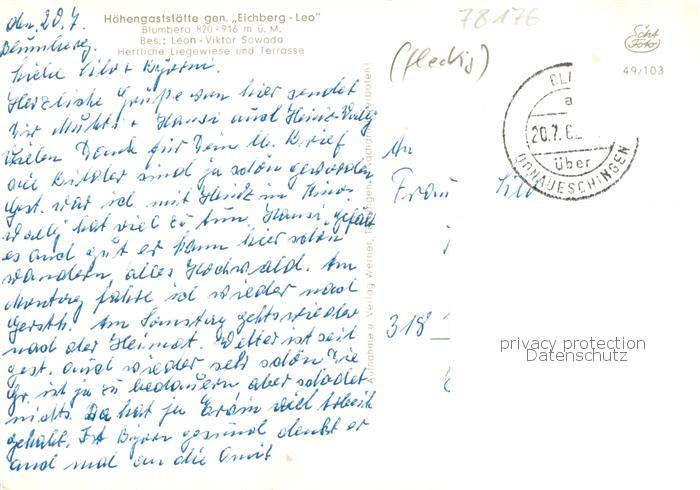 den 20.7.
Blumberg.
Höhengaststätte gen. „Eichberg-Leo"
Blumberg 820-916 m ü. M.
Bes.: Leon-Viktor Sowada
Herrliche Liegewiese und Terrasse
Liebe
Herzliche Grüße von hier sendet
Dir Mutti + Hansi auch Heinz
Vielen Dank für Dein lb. Brief
die Bilder sind ja schön geworden
Gest. war ich mit Heinz im Kino.
hat viel zu tun, Hansi gefällt
es auch gut er kann hier schön
wandern, alles Hochwald. Am
Montag fahre ich wieder nach
Am Samstag gehts wieder
nach der Heimat. Wetter ist seit
gest. auch wieder sehr schön Die
ist ja zu bedauern aber schadet
nichts. Da hat ja viel Arbeit
gehabt. Ist gesund denkt er
auch mal an die
Aufnahme u. Verlag Werner,
78176
(fleckig)
Schö
Foto
49/103
BL
a
20.7.6
über
DONAUESCHINGEN
An
Frau
318
privacy protection
Datenschutz